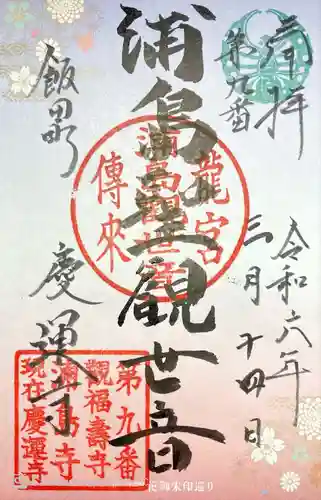 奉拝
第九番
令和六年
三月
十四日
浦島観世音
龍宮
浦島観世音
傳来
飯田町
慶運寺
第九番
観福壽寺
浦島寺
現在慶運寺
花御朱印巡り